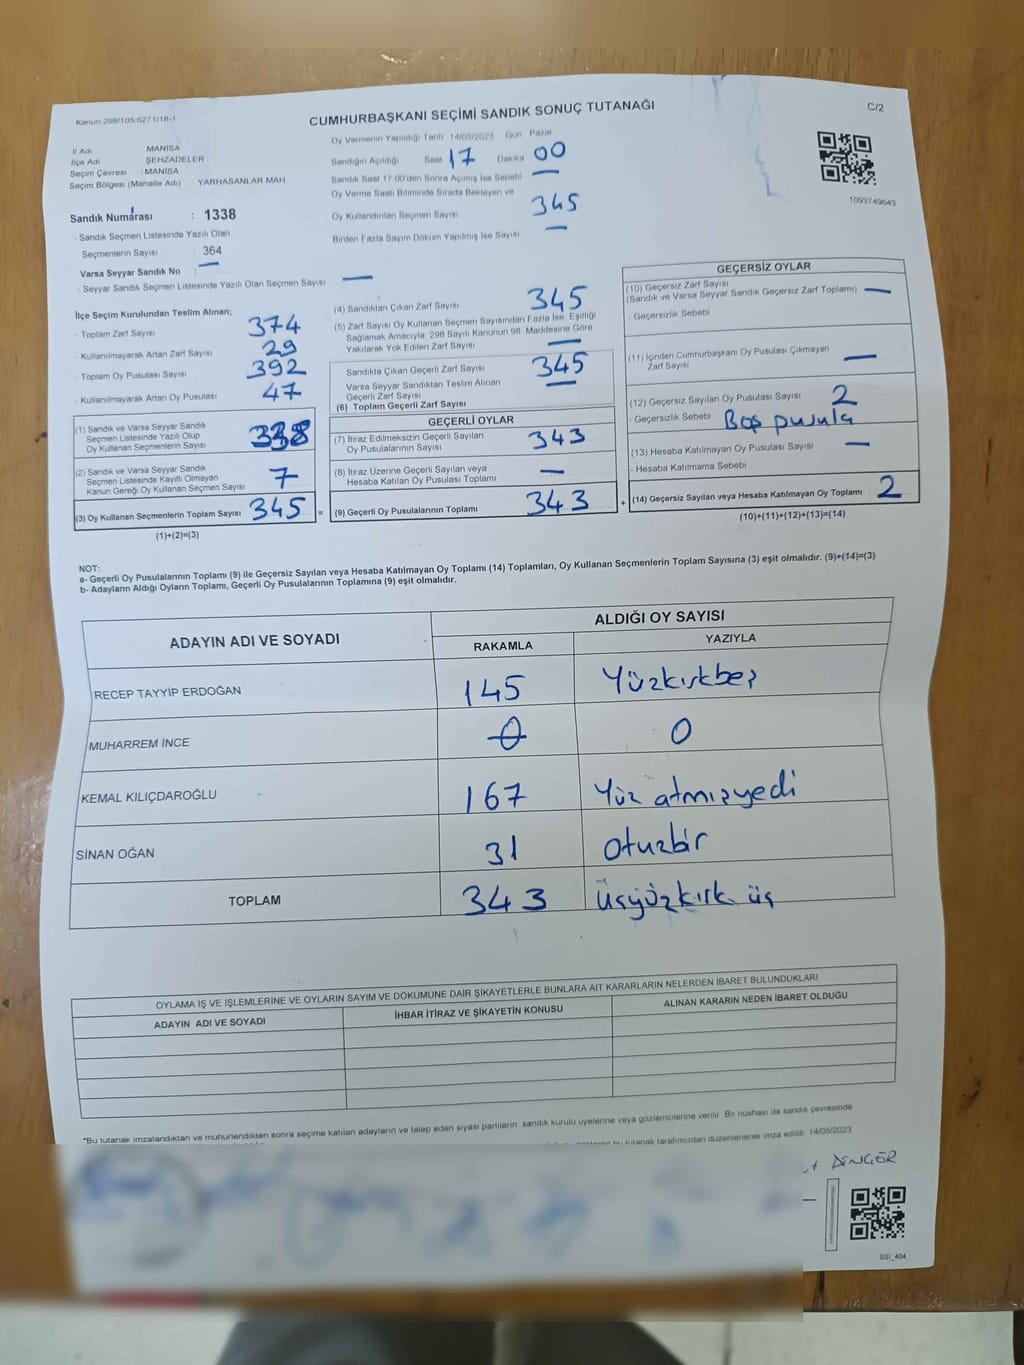 Kanun:298/105,6271/18-1
CUMHURBAŞKANI SEÇİMİ SANDIK SONUÇ TUTANAĞI
C/2
İl Adı MANİSA
İlçe Adı ŞEHZADELER
Seçim Çevresi : MANİSA
Seçim Bölgesi (Mahalle Adı) YARHASANLAR MAH
Sandık Numarası : 1338
- Sandık Seçmen Listesinde Yazılı Olan
Seçmenlerin Sayısı : 364
Varsa Seyyar Sandık No : —
- Seyyar Sandık Seçmen Listesinde Yazılı Olan Seçmen Sayısı —
Oy Vermenin Yapıldığı Tarih 14/05/2023 Gün Pazar
Sandığın Açıldığı Saat 17 Dakika 00
Sandık Saat 17.00'den Sonra Açılmış İse Sebebi —
Oy Verme Saati Bitiminde Sırada Bekleyen ve
Oy Kullandırılan Seçmen Sayısı 345
Birden Fazla Sayım Döküm Yapılmış İse Sayısı —
1093749643
İlçe Seçim Kurulundan Teslim Alınan;
- Toplam Zarf Sayısı 374
- Kullanılmayarak Artan Zarf Sayısı 29
- Toplam Oy Pusulası Sayısı 392
- Kullanılmayarak Artan Oy Pusulası 47
(1) Sandık ve Varsa Seyyar Sandık
Seçmen Listesinde Yazılı Olup
Oy Kullanan Seçmenlerin Sayısı 338
(2) Sandık ve Varsa Seyyar Sandık
Seçmen Listesinde Kayıtlı Olmayan
Kanun Gereği Oy Kullanan Seçmen Sayısı 7
(3) Oy Kullanan Seçmenlerin Toplam Sayısı 345 =
(1)+(2)=(3)
(4) Sandıktan Çıkan Zarf Sayısı 345
(5) Zarf Sayısı Oy Kullanan Seçmen Sayısından Fazla İse, Eşitliği
Sağlamak Amacıyla, 298 Sayılı Kanunun 98. Maddesine Göre
Yakılarak Yok Edilen Zarf Sayısı —
Sandıkta Çıkan Geçerli Zarf Sayısı 345
Varsa Seyyar Sandıktan Teslim Alınan
Geçerli Zarf Sayısı —
(6) Toplam Geçerli Zarf Sayısı
GEÇERLİ OYLAR
(7) İtiraz Edilmeksizin Geçerli Sayılan
Oy Pusulalarının Sayısı 343
(8) İtiraz Üzerine Geçerli Sayılan veya
Hesaba Katılan Oy Pusulası Toplamı —
(9) Geçerli Oy Pusulalarının Toplamı 343 +
GEÇERSİZ OYLAR
(10) Geçersiz Zarf Sayısı
(Sandık ve Varsa Seyyar Sandık Geçersiz Zarf Toplamı) —
- Geçersizlik Sebebi
(11) İçinden Cumhurbaşkanı Oy Pusulası Çıkmayan
Zarf Sayısı —
(12) Geçersiz Sayılan Oy Pusulası Sayısı 2
- Geçersizlik Sebebi Boş pusula
(13) Hesaba Katılmayan Oy Pusulası Sayısı —
- Hesaba Katılmama Sebebi
(14) Geçersiz Sayılan veya Hesaba Katılmayan Oy Toplamı 2
(10)+(11)+(12)+(13)=(14)
NOT:
a- Geçerli Oy Pusulalarının Toplamı (9) ile Geçersiz Sayılan veya Hesaba Katılmayan Oy Toplamı (14) Toplamları, Oy Kullanan Seçmenlerin Toplam Sayısına (3) eşit olmalıdır. (9)+(14)=(3)
b- Adayların Aldığı Oyların Toplamı, Geçerli Oy Pusulalarının Toplamına (9) eşit olmalıdır.
ADAYIN ADI VE SOYADI
ALDIĞI OY SAYISI
RAKAMLA YAZIYLA
RECEP TAYYİP ERDOĞAN 145 Yüzkırkbeş
MUHARREM İNCE 0 0
KEMAL KILIÇDAROĞLU 167 Yüz atmışyedi
SİNAN OĞAN 31 otuzbir
TOPLAM 343 üçyüzkırk üç
OYLAMA İŞ VE İŞLEMLERİNE VE OYLARIN SAYIM VE DÖKÜMÜNE DAİR ŞİKAYETLERLE BUNLARA AİT KARARLARIN NELERDEN İBARET BULUNDUKLARI
ADAYIN ADI VE SOYADI İHBAR İTİRAZ VE ŞİKAYETİN KONUSU ALINAN KARARIN NEDEN İBARET OLDUĞU
*Bu tutanak imzalandıktan ve mühürlendikten sonra seçime katılan adayların ve talep eden siyasi partilerin sandık kurulu üyelerine veya gözlemcilerine verilir. Bir nüshası da sandık çevresinde
bu tutanak tarafımızdan düzenlenerek imza edildi. 14/05/2023
DİNÇER
SSI_404